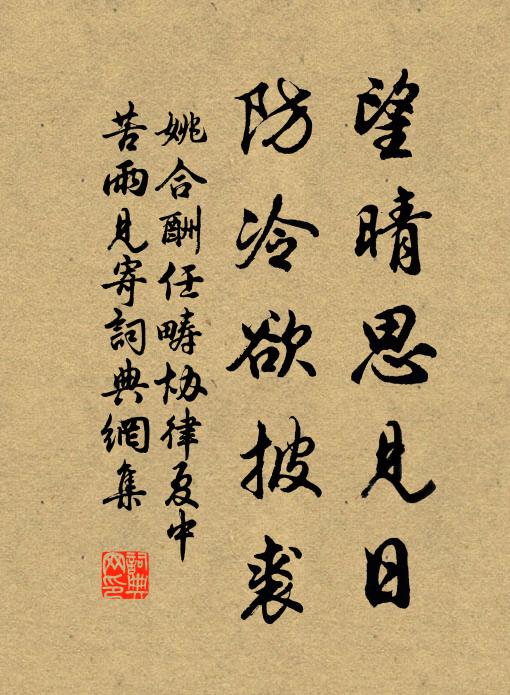 望晴思見日
防冷欲披裘
姚合酬任畴协律夏中
苦雨見寄詞典網集
詞典網印